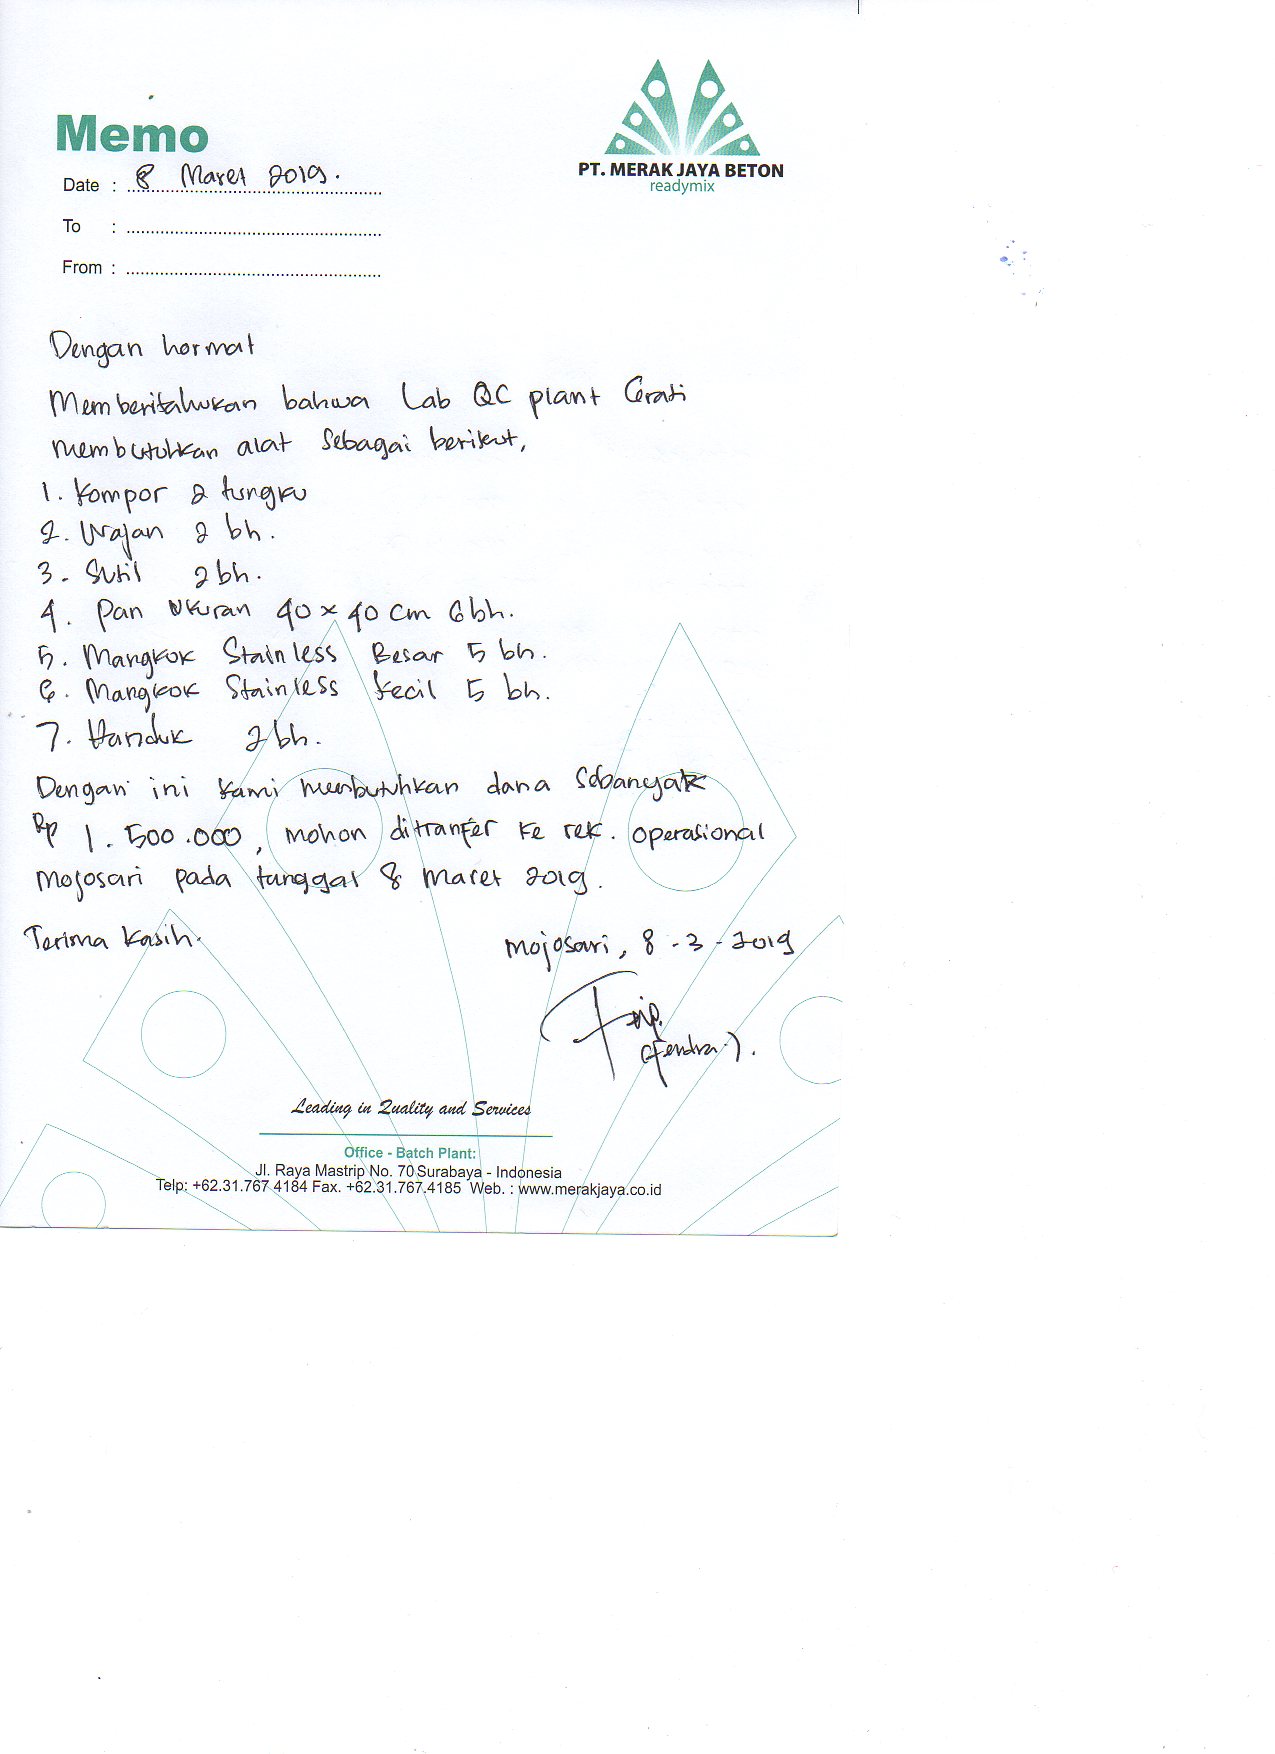 Memo
PT. MERAK JAYA BETON
readymix
Date : 8 Maret 2019.
To :
From :
Dengan hormat
Memberitahukan bahwa Lab QC plant Grati
membutuhkan alat sebagai berikut,
1. Kompor 2 tungku
2. Wajan 2 bh.
3. Sutil 2 bh.
4. Pan Ukuran 40 x 40 cm 6 bh.
5. Mangkok Stainless Besar 5 bh.
6. Mangkok Stainless Kecil 5 bh.
7. Handuk 2 bh.
Dengan ini kami membutuhkan dana sebanyak
Rp 1.500.000, mohon ditranfer ke rek. operasional
Mojosari pada tanggal 8 Maret 2019.
Terima Kasih.
Mojosari, 8 - 3 - 2019
Leading in Quality and Services
Office - Batch Plant:
Jl. Raya Mastrip No. 70 Surabaya - Indonesia
Telp: +62.31.767 4184 Fax. +62.31.767.4185 Web. : www.merakjaya.co.id